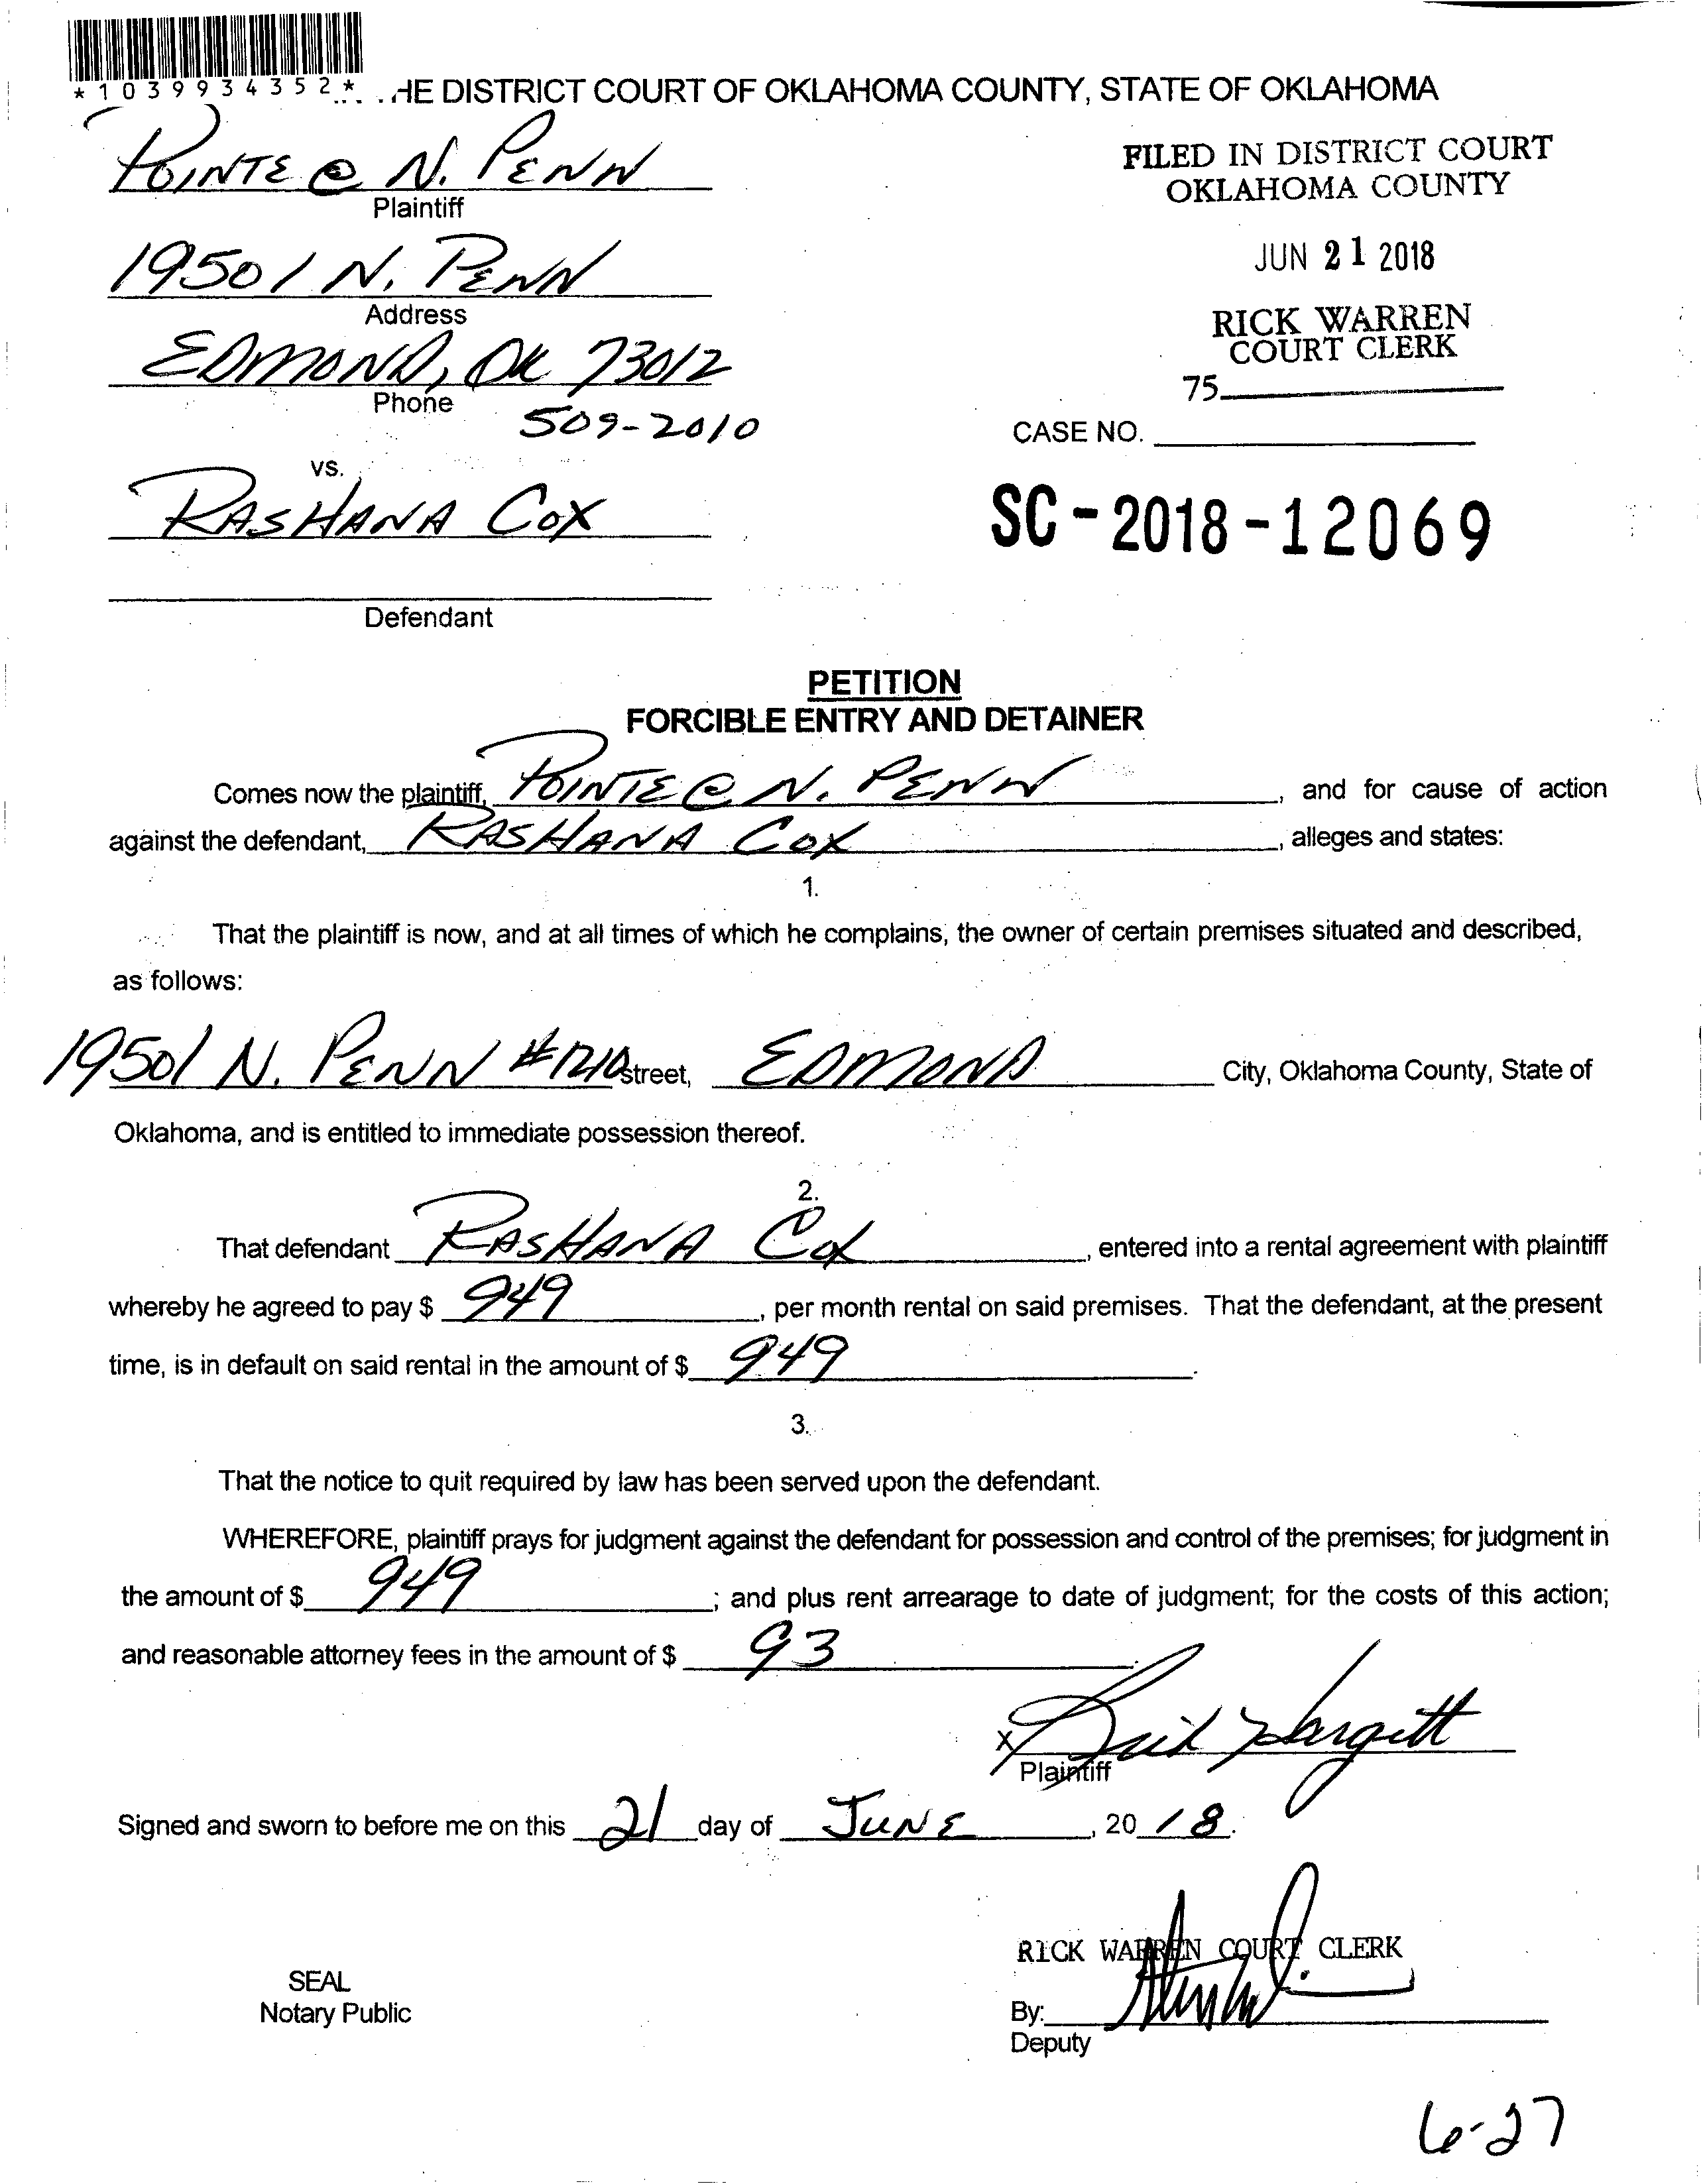 *1039934352*
HE DISTRICT COURT OF OKLAHOMA COUNTY, STATE OF OKLAHOMA
POINTE @ N. PENN
Plaintiff
FILED IN DISTRICT COURT
OKLAHOMA COUNTY
19501 N. PENN
Address
JUN 21 2018
EDMOND, OK 73012
Phone
509-2010
RICK WARREN
COURT CLERK
75
CASE NO.
vs.
RASHANA COX
SC-2018-12069
Defendant
PETITION
FORCIBLE ENTRY AND DETAINER
Comes now the plaintiff, POINTE @ N. PENN, and for cause of action
against the defendant, RASHANA COX, alleges and states:
1.
That the plaintiff is now, and at all times of which he complains, the owner of certain premises situated and described,
as follows:
19501 N. PENN #1210 street, EDMOND City, Oklahoma County, State of
Oklahoma, and is entitled to immediate possession thereof.
2.
That defendant RASHANA COX, entered into a rental agreement with plaintiff
whereby he agreed to pay $ 949, per month rental on said premises. That the defendant, at the present
time, is in default on said rental in the amount of $ 949.
3.
That the notice to quit required by law has been served upon the defendant.
WHEREFORE, plaintiff prays for judgment against the defendant for possession and control of the premises; for judgment in
the amount of $ 949; and plus rent arrearage to date of judgment; for the costs of this action;
and reasonable attorney fees in the amount of $ 93
X Hargett
Plaintiff
Signed and sworn to before me on this 21 day of JUNE, 2018.
RICK WARREN COURT CLERK
SEAL
Notary Public
By:
Deputy
6-27